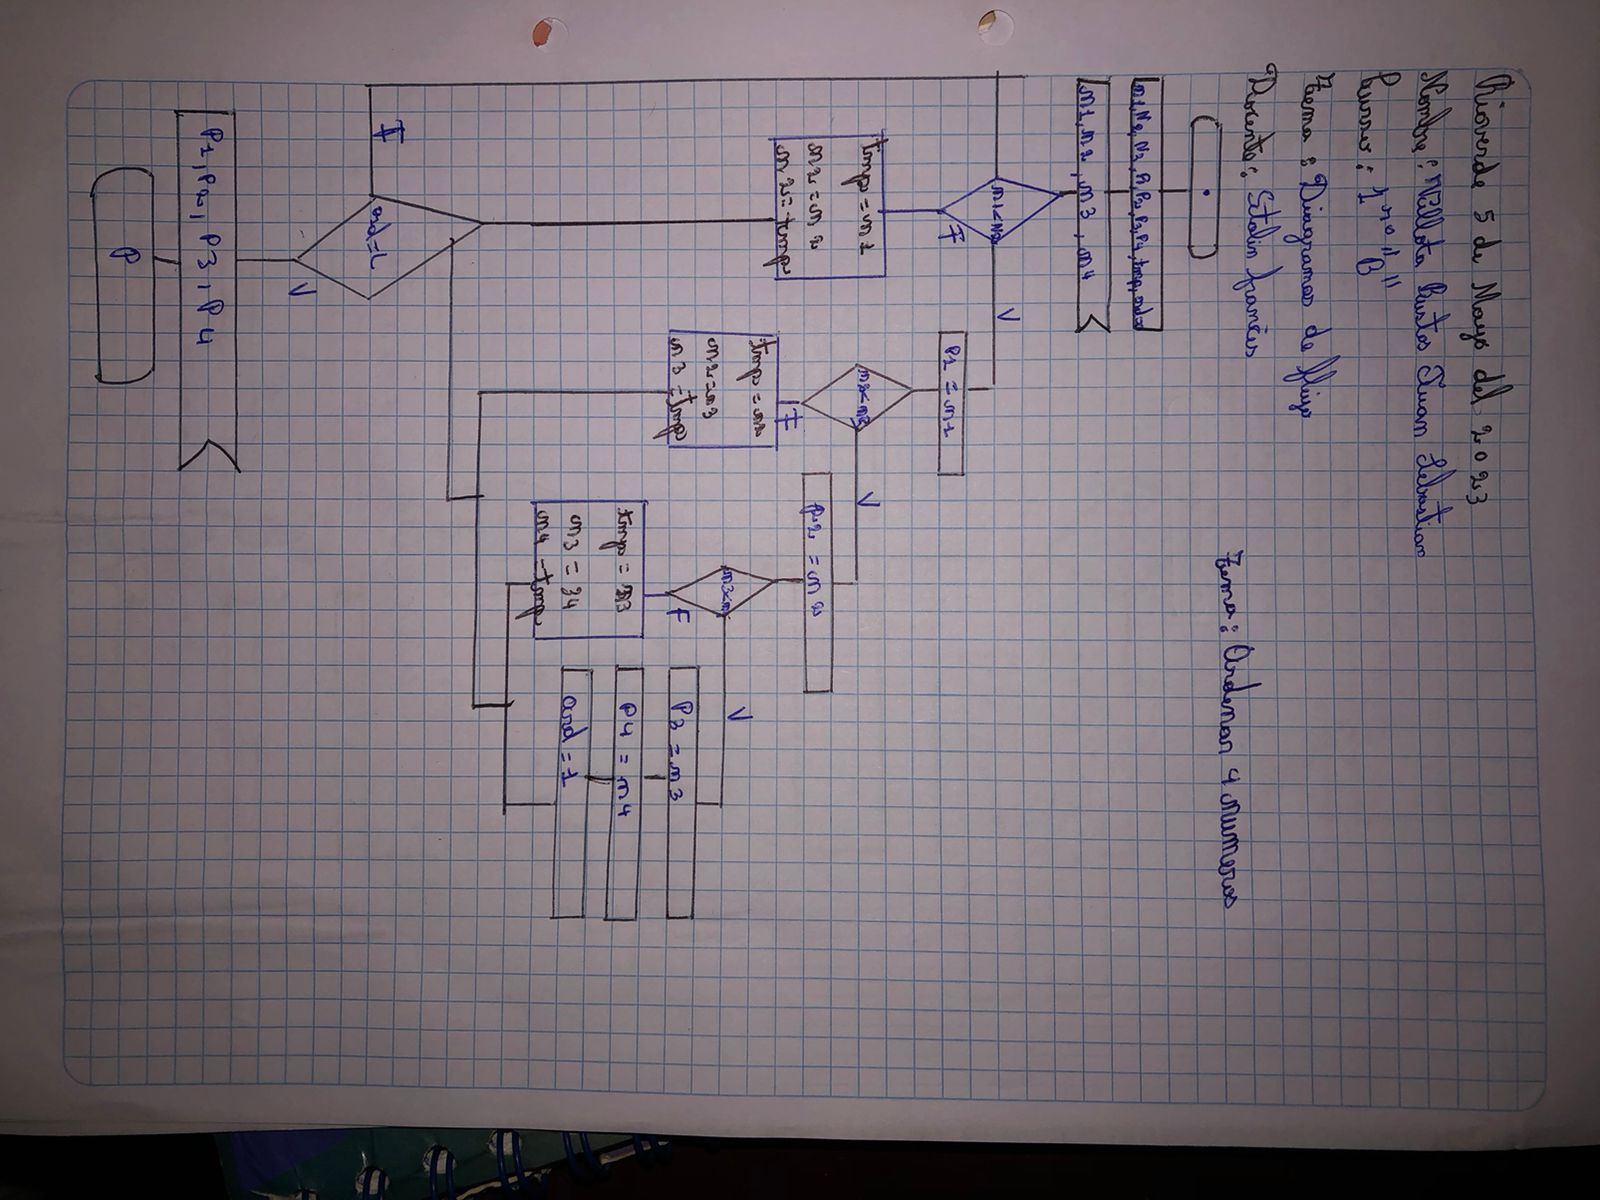 Rioverde 5 de Mayo del 2023
Nombre: Villota Bustos Juan Sebastian
Curso: 1ro "B"
Tema: Diagramas de flujo
Docente: Stalin francis
Tema: Ordenar 4 Numeros
n1, N2, N3, P1, P2, P3, P4, tmp, ord
n1, n2, n3, n4
V
F
P1 = n1
tmp = n1
n2 = n2
n2 = tmp
n2<n3
V
F
P2 = n2
tmp = n2
n2 = n3
n3 = tmp
V
F
P3 = n3
P4 = n4
ord = 1
tmp = n3
n3 = 34
n4 = tmp
F
V
P1, P2, P3, P4
P